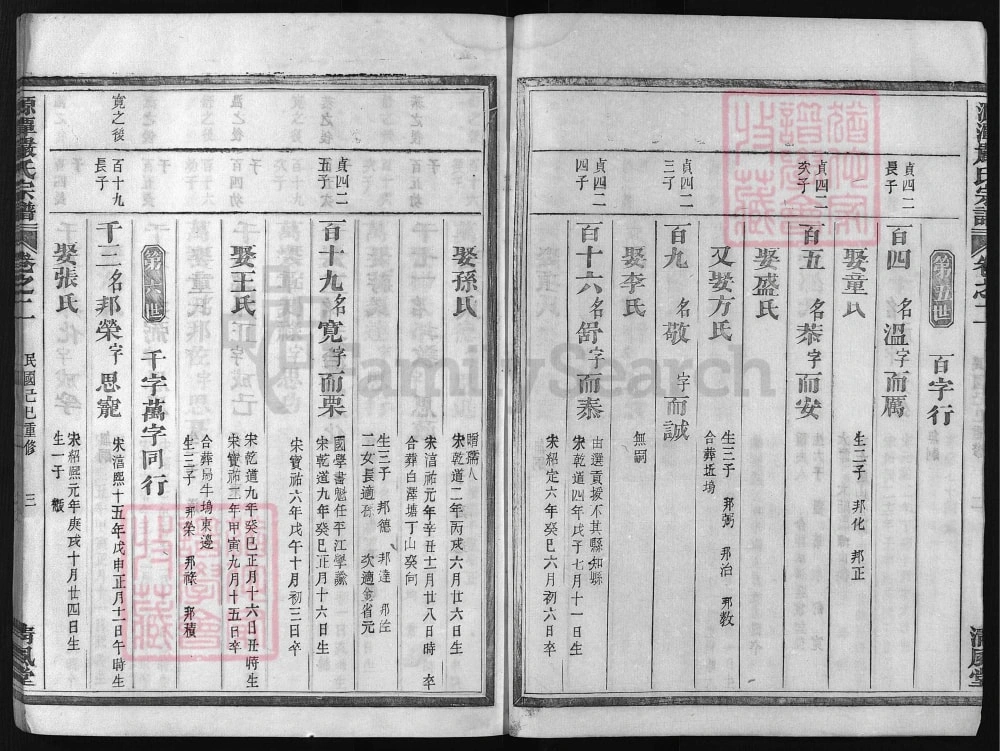 第五世
百字行
貞四二長子
百四 名溫字而厲
娶童氏
生二子 邦化 邦正
貞四二次子
百五 名恭字而安
娶盛氏
又娶方氏
生三子 邦弼 邦治 邦教
合葬坵塢
貞四二三子
百九 名敬 字而誠
娶李氏
無嗣
貞四二四子
百十六 名舒字而泰
由選貢授不其縣知縣
宋乾道四年戊子七月十一日生
宋紹定六年癸巳六月初六日卒
娶孫氏
贈孺人
宋乾道二年丙戌六月廿六日生
宋淳祐元年辛丑十二月廿八日時卒
合葬白澤塘丁山癸向
生三子 邦德 邦達 邦
二女長適 次適金省元
貞四二五子
百十九 名寬字而栗
國學書魁任平江學諭
宋乾道九年癸巳正月十六日生
宋寶祐六年戊午十月初三日卒
娶王氏
宋乾道九年癸巳正月十六日丑時生
宋寶祐二年甲寅九月十五日卒
合葬馬牛塢東邊
生三子 邦榮 邦祿 邦積
第六世
千字萬字同行
寬之後
百十九長子
千二 名邦榮字思寵
宋淳熙十五年戊申正月十二日午時生
娶張氏
宋紹熙元年庚戌十月廿四日生
生一子
源潭嚴氏宗譜
卷之二
民國己巳重修
三
清風堂
FamilySearch